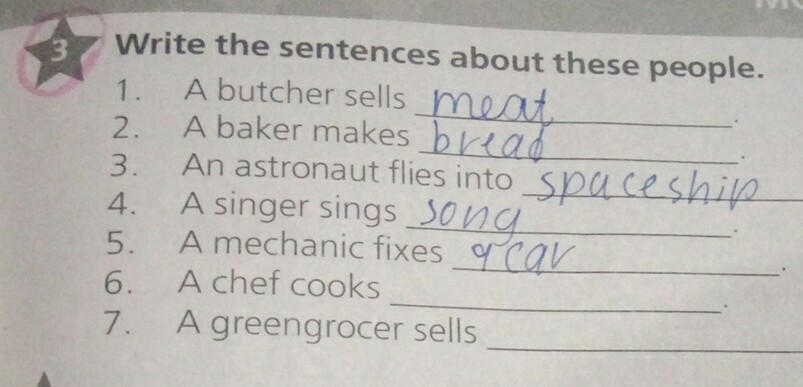 3 Write the sentences about these people.
1. A butcher sells meat.
2. A baker makes bread.
3. An astronaut flies into spaceship
4. A singer sings song.
5. A mechanic fixes a car.
6. A chef cooks .
7. A greengrocer sells